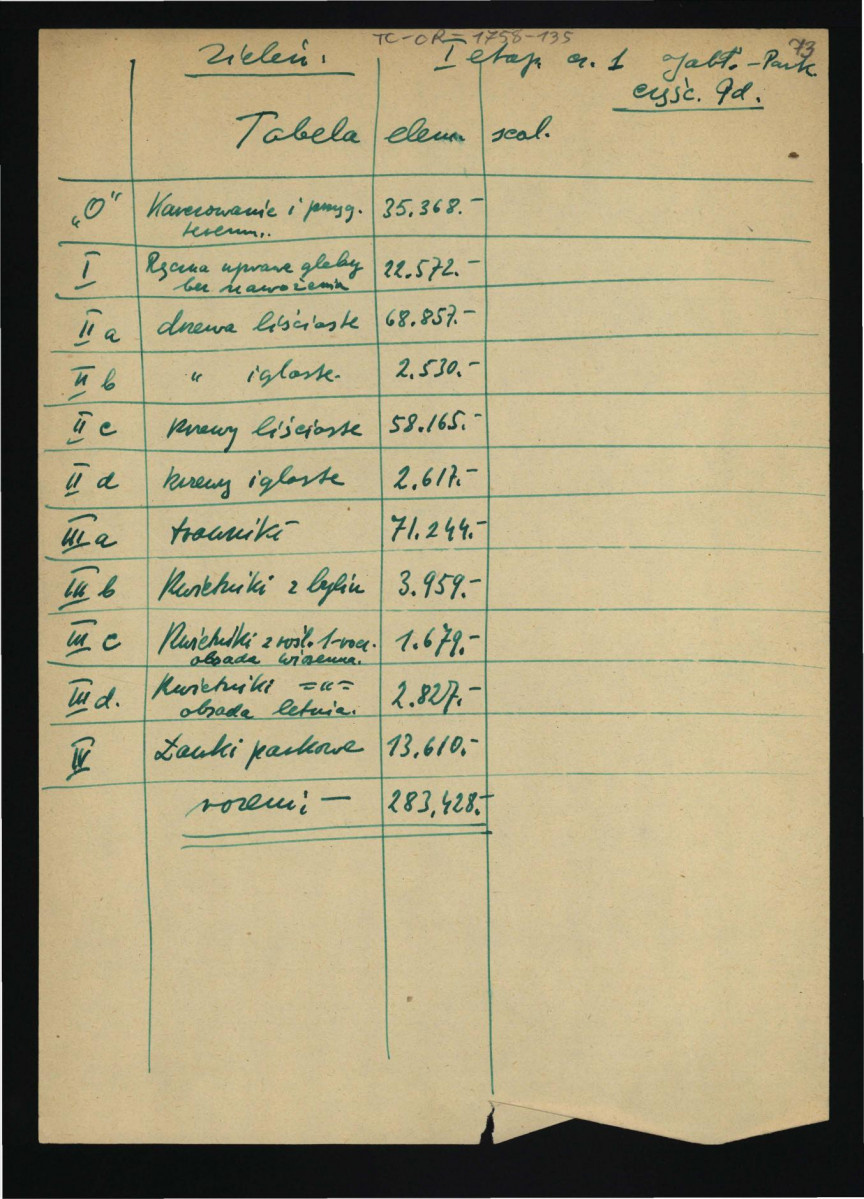 TC-OR-1758-135
73
Zieleń. I etap cz. 1 Jabł.-Park.
część. Pd.
Tabela elem. scal.
„O" Karczowanie i przyg. 35.368.-
terenu..
I Ręczna uprawa gleby 22.572.-
bez nawożenia
II a drzewa liściaste 68.857.-
II b " iglaste. 2.530.-
II c krzewy liściaste 58.165.-
II d krzewy iglaste 2.617.-
III a trawniki 71.244.-
III b Kwietniki z bylin 3.959.-
III c Kwietniki z rośl. 1-rocz. 1.679.-
obsada wiosenna.
III d. Kwietniki ="= 2.827.-
obsada letnia.
IV Ławki parkowe 13.610.-
razem: — 283,428.-